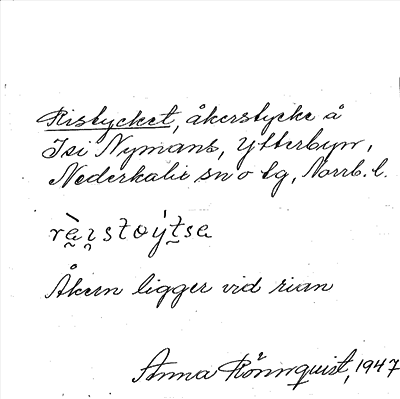 Ristycket, åkerstycke å
Isi Nymans, Ytterbyn,
Nederkalix sn o tg, Norrb. l.
ràɪstoýtsa
Åkern ligger vid rian
Anna Rönnquist, 1947